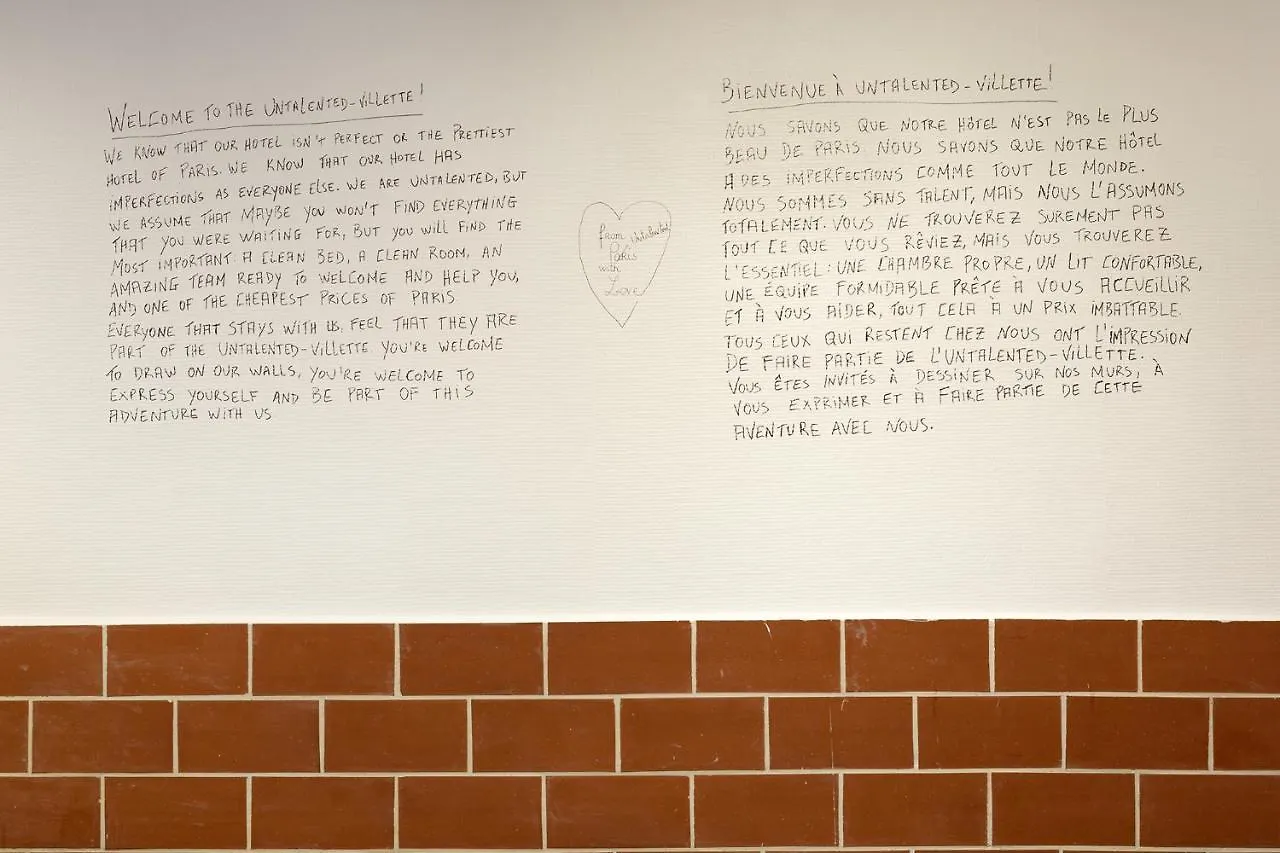 WELCOME TO THE UNTALENTED-VILLETTE!
WE KNOW THAT OUR HOTEL ISN'T PERFECT OR THE PRETTIEST
HOTEL OF PARIS. WE KNOW THAT OUR HOTEL HAS
IMPERFECTIONS AS EVERYONE ELSE. WE ARE UNTALENTED, BUT
WE ASSUME THAT MAYBE YOU WON'T FIND EVERYTHING
THAT YOU WERE WAITING FOR, BUT YOU WILL FIND THE
MOST IMPORTANT. A CLEAN BED, A CLEAN ROOM, AN
AMAZING TEAM READY TO WELCOME AND HELP YOU,
AND ONE OF THE CHEAPEST PRICES OF PARIS
EVERYONE THAT STAYS WITH US, FEEL THAT THEY ARE
PART OF THE UNTALENTED-VILLETTE. YOU'RE WELCOME
TO DRAW ON OUR WALLS, YOU'RE WELCOME TO
EXPRESS YOURSELF AND BE PART OF THIS
ADVENTURE WITH US
from Untalented
Paris
with
Love
BIENVENUE À UNTALENTED-VILLETTE!
NOUS SAVONS QUE NOTRE HÔTEL N'EST PAS LE PLUS
BEAU DE PARIS. NOUS SAVONS QUE NOTRE HÔTEL
A DES IMPERFECTIONS COMME TOUT LE MONDE.
NOUS SOMMES SANS TALENT, MAIS NOUS L'ASSUMONS
TOTALEMENT. VOUS NE TROUVEREZ SUREMENT PAS
TOUT CE QUE VOUS RÊVIEZ, MAIS VOUS TROUVEREZ
L'ESSENTIEL: UNE CHAMBRE PROPRE, UN LIT CONFORTABLE,
UNE ÉQUIPE FORMIDABLE PRÊTE À VOUS ACCUEILLIR
ET À VOUS AIDER, TOUT CELA À UN PRIX IMBATTABLE.
TOUS CEUX QUI RESTENT CHEZ NOUS ONT L'IMPRESSION
DE FAIRE PARTIE DE L'UNTALENTED-VILLETTE.
VOUS ÊTES INVITÉS À DESSINER SUR NOS MURS, À
VOUS EXPRIMER ET À FAIRE PARTIE DE CETTE
AVENTURE AVEC NOUS.